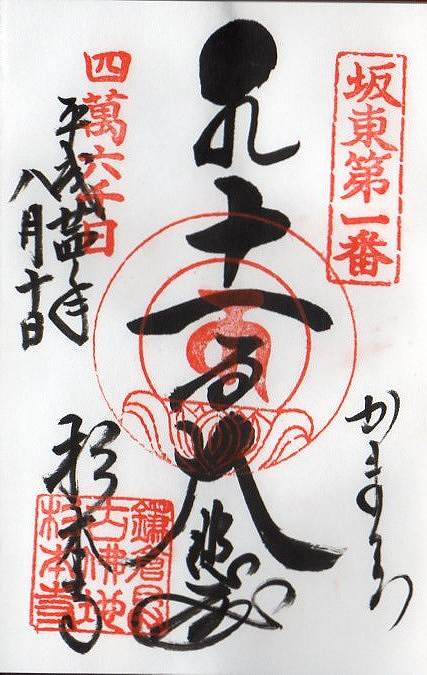 坂東第一番
かまくら
十一面大悲殿
四萬六千日
平成廿四年
八月十日
杉本寺
鎌倉最
古佛地
杉本寺